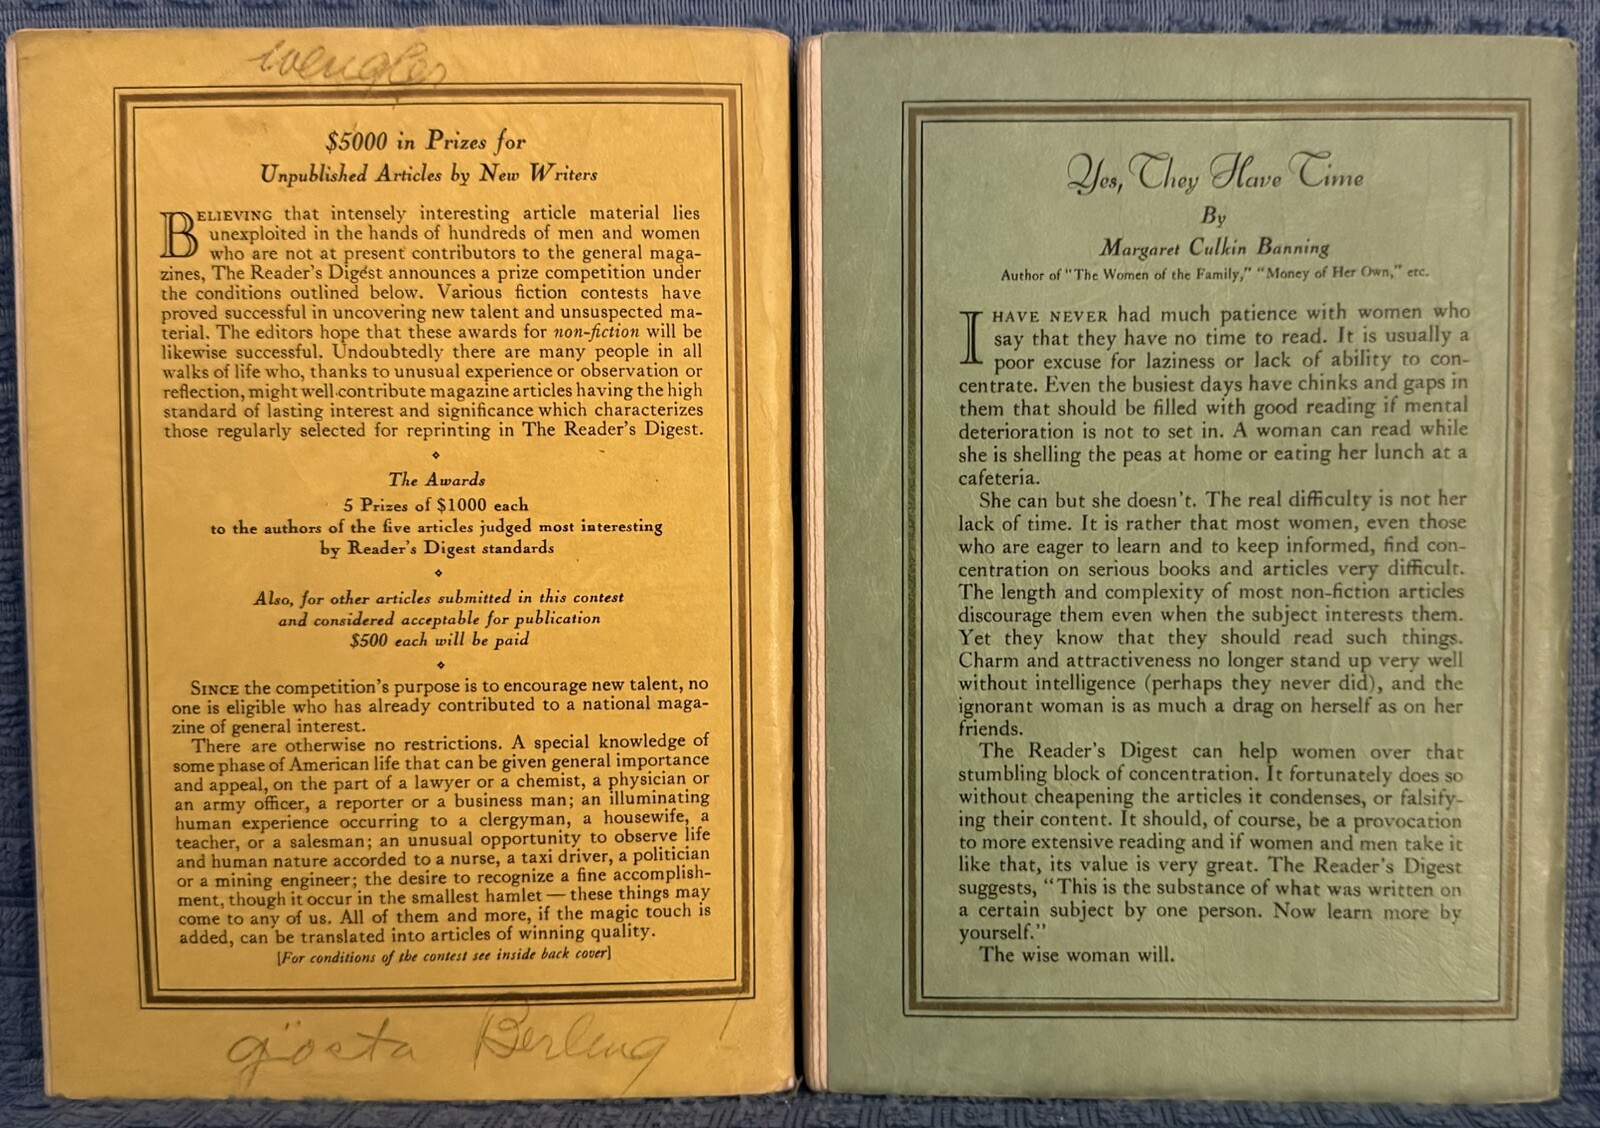 $5000 in Prizes for
Unpublished Articles by New Writers
BELIEVING that intensely interesting article material lies
unexploited in the hands of hundreds of men and women
who are not at present contributors to the general maga-
zines, The Reader's Digest announces a prize competition under
the conditions outlined below. Various fiction contests have
proved successful in uncovering new talent and unsuspected ma-
terial. The editors hope that these awards for non-fiction will be
likewise successful. Undoubtedly there are many people in all
walks of life who, thanks to unusual experience or observation or
reflection, might well contribute magazine articles having the high
standard of lasting interest and significance which characterizes
those regularly selected for reprinting in The Reader's Digest.
The Awards
5 Prizes of $1000 each
to the authors of the five articles judged most interesting
by Reader's Digest standards
Also, for other articles submitted in this contest
and considered acceptable for publication
$500 each will be paid
SINCE the competition's purpose is to encourage new talent, no
one is eligible who has already contributed to a national maga-
zine of general interest.
There are otherwise no restrictions. A special knowledge of
some phase of American life that can be given general importance
and appeal, on the part of a lawyer or a chemist, a physician or
an army officer, a reporter or a business man; an illuminating
human experience occurring to a clergyman, a housewife, a
teacher, or a salesman; an unusual opportunity to observe life
and human nature accorded to a nurse, a taxi driver, a politician
or a mining engineer; the desire to recognize a fine accomplish-
ment, though it occur in the smallest hamlet — these things may
come to any of us. All of them and more, if the magic touch is
added, can be translated into articles of winning quality.
[For conditions of the contest see inside back cover]
gösta Berling
Yes, They Have Time
By
Margaret Culkin Banning
Author of "The Women of the Family," "Money of Her Own," etc.
I HAVE NEVER had much patience with women who
say that they have no time to read. It is usually a
poor excuse for laziness or lack of ability to con-
centrate. Even the busiest days have chinks and gaps in
them that should be filled with good reading if mental
deterioration is not to set in. A woman can read while
she is shelling the peas at home or eating her lunch at a
cafeteria.
She can but she doesn't. The real difficulty is not her
lack of time. It is rather that most women, even those
who are eager to learn and to keep informed, find con-
centration on serious books and articles very difficult.
The length and complexity of most non-fiction articles
discourage them even when the subject interests them.
Yet they know that they should read such things.
Charm and attractiveness no longer stand up very well
without intelligence (perhaps they never did), and the
ignorant woman is as much a drag on herself as on her
friends.
The Reader's Digest can help women over that
stumbling block of concentration. It fortunately does so
without cheapening the articles it condenses, or falsify-
ing their content. It should, of course, be a provocation
to more extensive reading and if women and men take it
like that, its value is very great. The Reader's Digest
suggests, "This is the substance of what was written on
a certain subject by one person. Now learn more by
yourself."
The wise woman will.